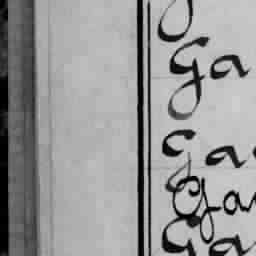 Ga
Ga
Ga
Ga